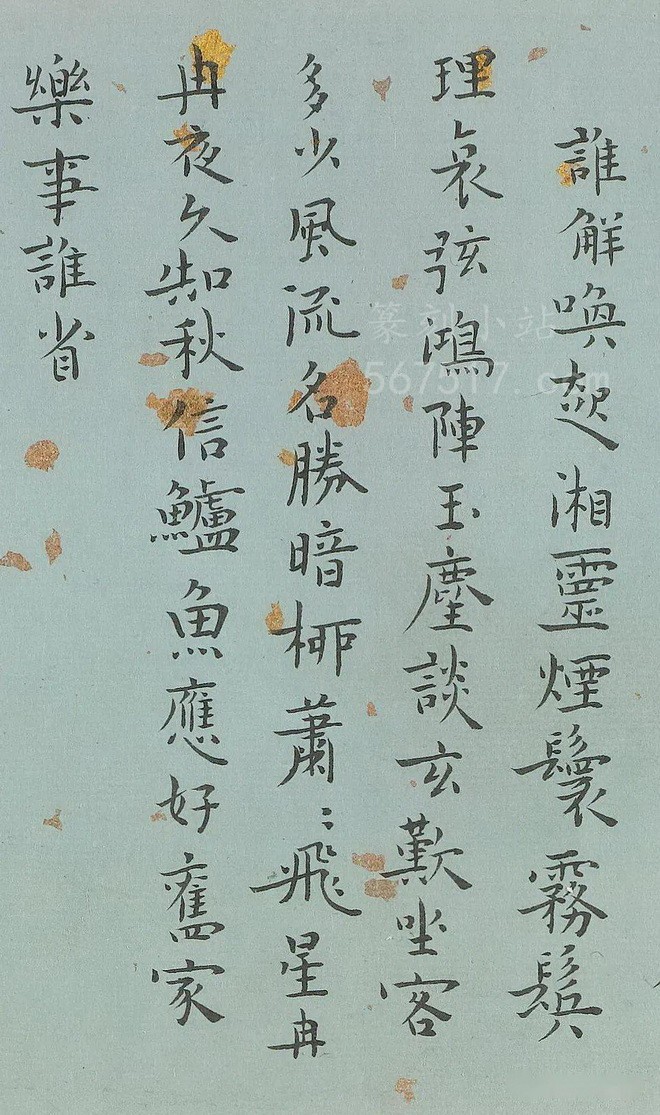 誰解喚起湘靈煙鬟霧鬢
理哀弦鴻陣玉麈談玄歎坐客
多少風流名勝暗柳蕭〻飛星冉
冉夜久知秋信鱸魚應好舊家
樂事誰省
篆刻小站
567517.com